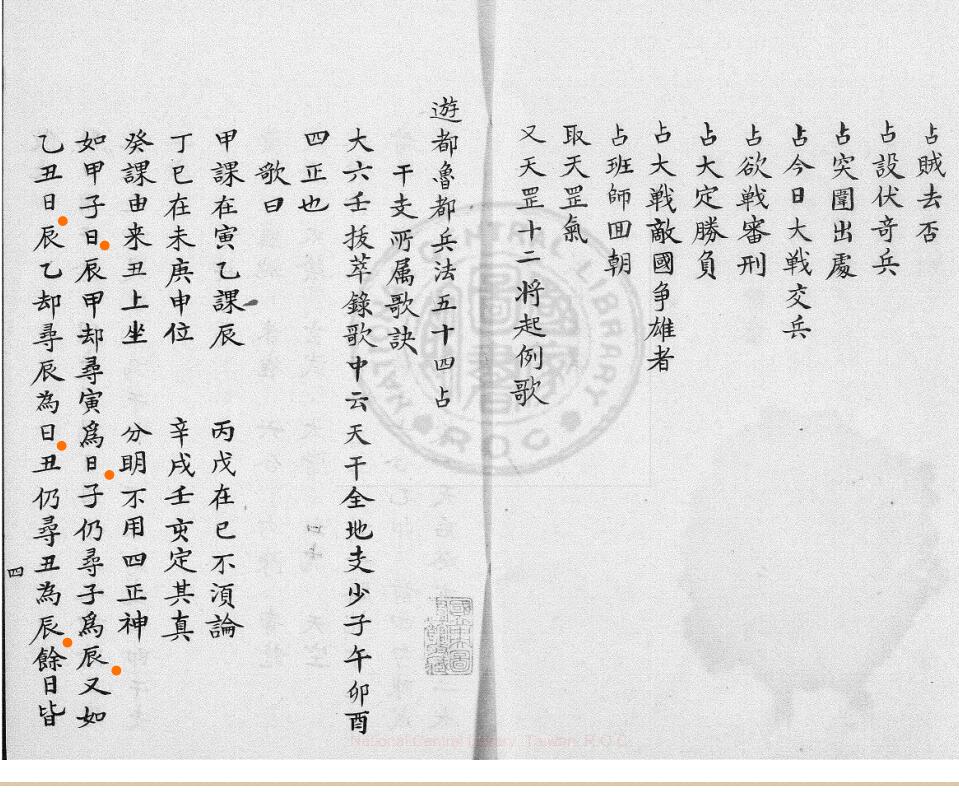 占賊去否
占設伏竒兵
占突圍出處
占今日大戰交兵
占欲戰審刑
占大定勝負
占大戰敵國爭雄者
占班師回朝
取天罡氣
又天罡十二將起例歌
遊都魯都兵法五十四占
干支所属歌訣
大六壬拔萃錄歌中云天干全地支少子午卯酉
四正也
歌曰
甲課在寅乙課辰 丙戊在巳不須論
丁巳在未庚申位 辛戌壬亥定其真
癸課由来丑上坐 分明不用四正神
如甲子日辰甲却尋寅爲日子仍尋子爲辰又如
乙丑日辰乙却尋辰為日丑仍尋丑為辰餘日皆
四
National Central Library, Taiwan, R.O.C
NATIONAL CENTRAL LIBRARY
R.O.C